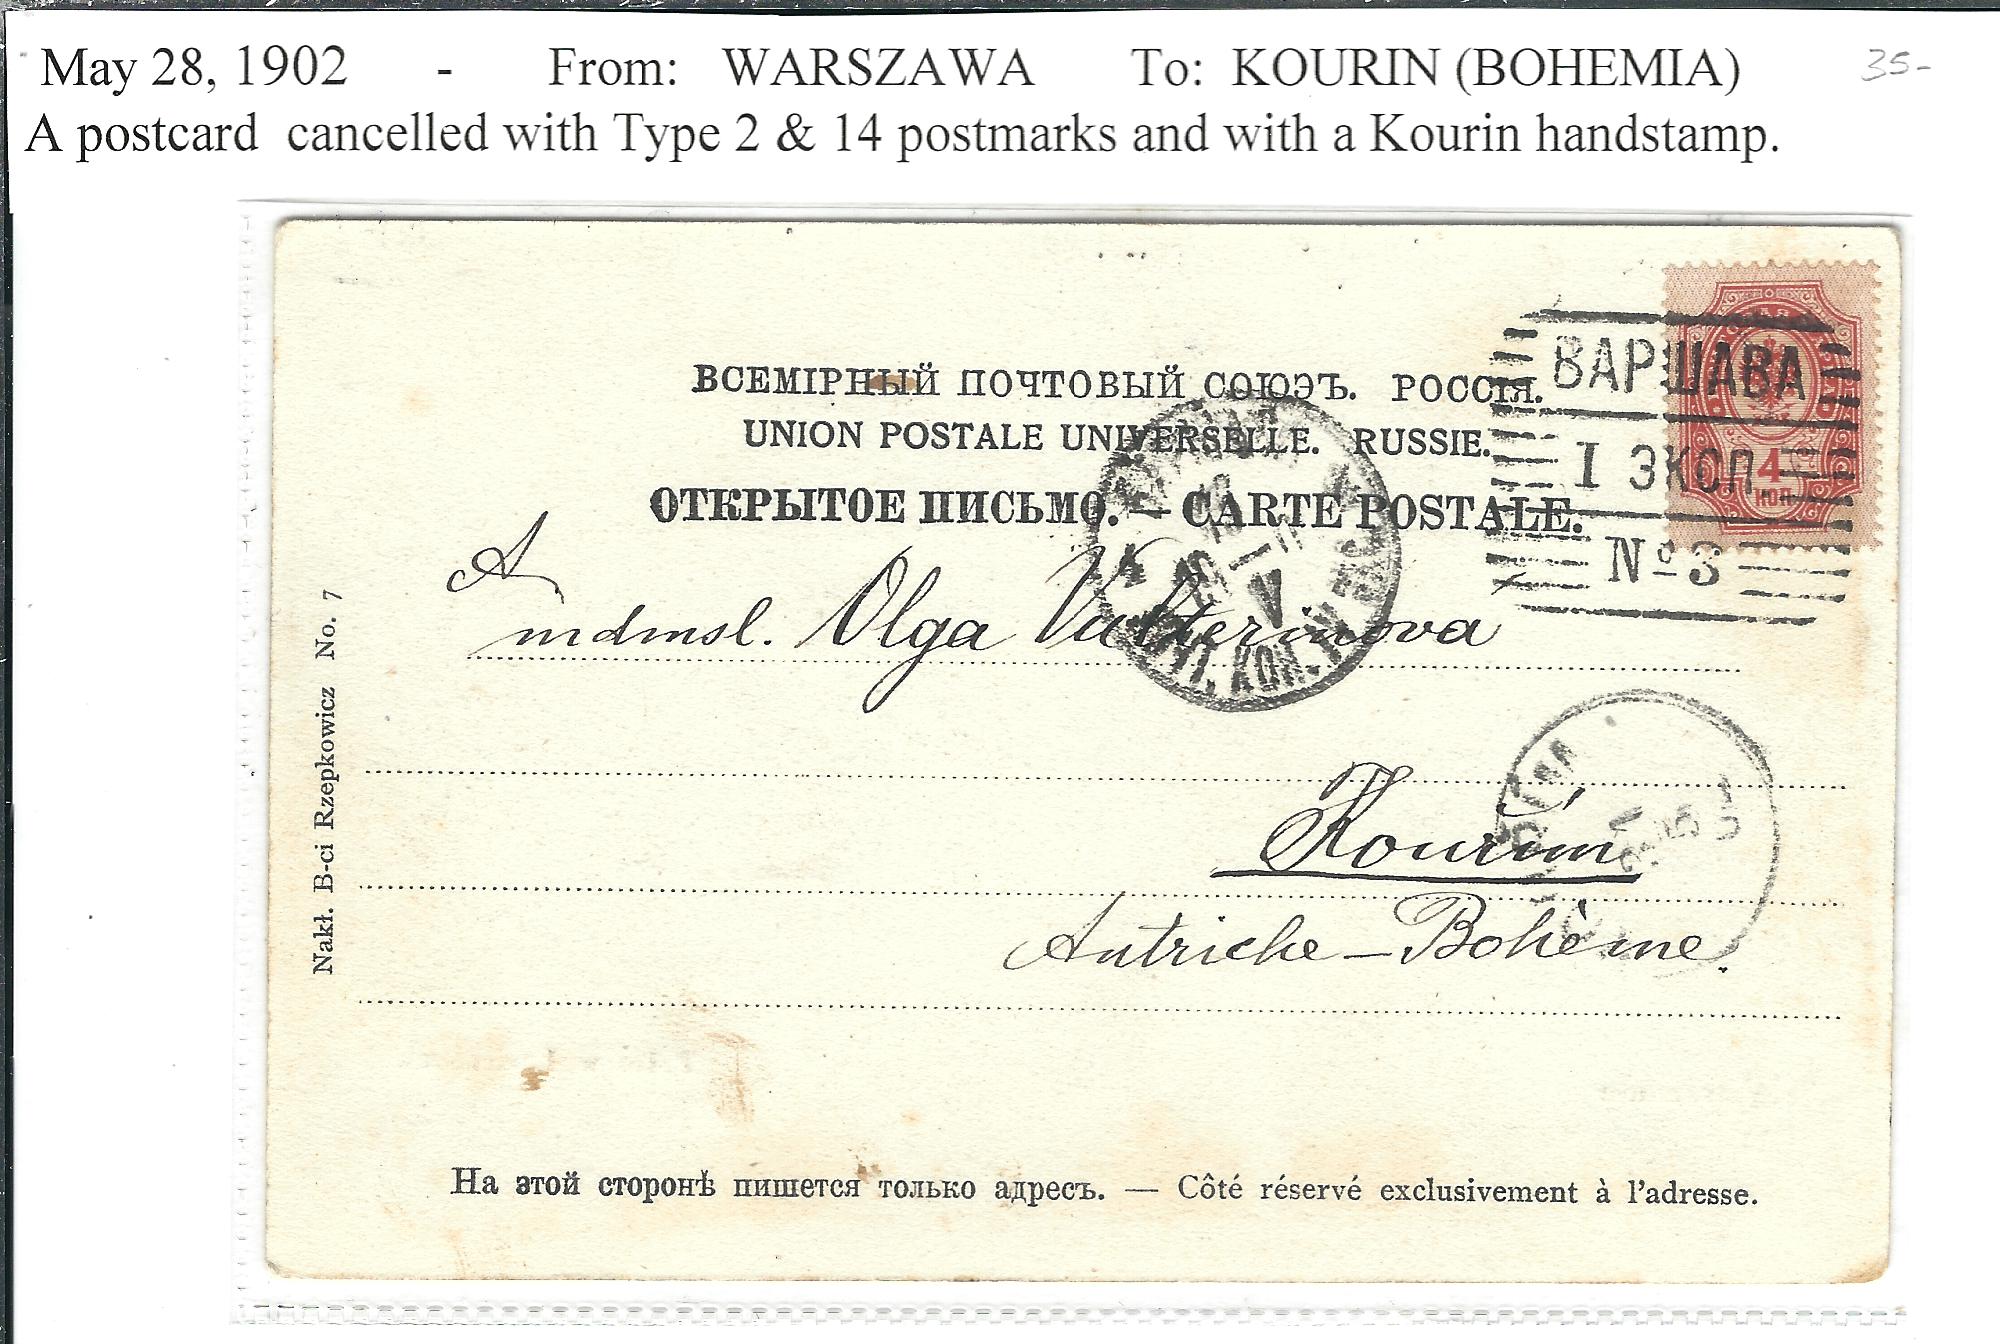 May 28, 1902 - From: WARSZAWA To: KOURIN (BOHEMIA) 35-
A postcard cancelled with Type 2 & 14 postmarks and with a Kourin handstamp.
ВСЕМІРНЫЙ ПОЧТОВЫЙ СОЮЭЪ. РОССІЯ.
UNION POSTALE UNIVERSELLE. RUSSIE.
ОТКРЫТОЕ ПИСЬМО. — CARTE POSTALE.
ВАРШАВА
I ЭКСП.
№ 3
4
КОП
A
mdmsl. Olga Valterinova
Kouřim
Autriche – Bohème.
Nakł. B-ci Rzepkowicz No. 7
На этой сторонѣ пишется только адресъ. — Côté réservé exclusivement à l'adresse.